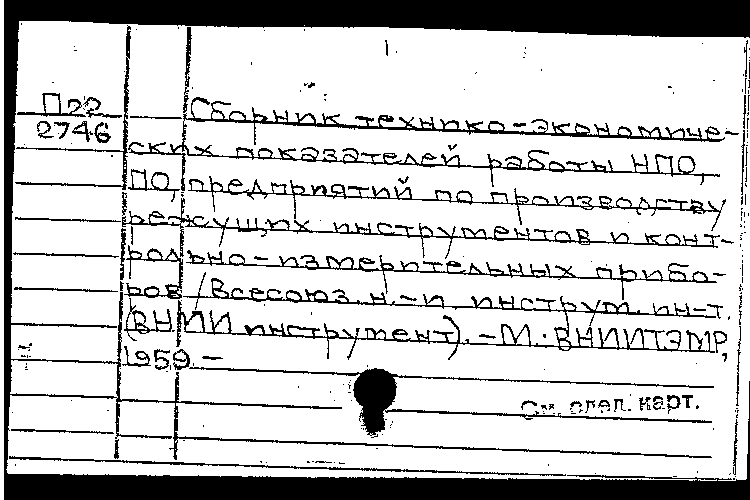 П22
2746
Сборник технико-экономиче-
ских показателей работы НПО,
ПО, предприятий по производству
режущих инструментов и конт-
рольно-измерительных прибо-
ров / Всесоюз. н.-и. инструм. ин-т.
(ВНИИинструмент). - М.: ВНИИТЭМР,
1959. -
См. след. карт.